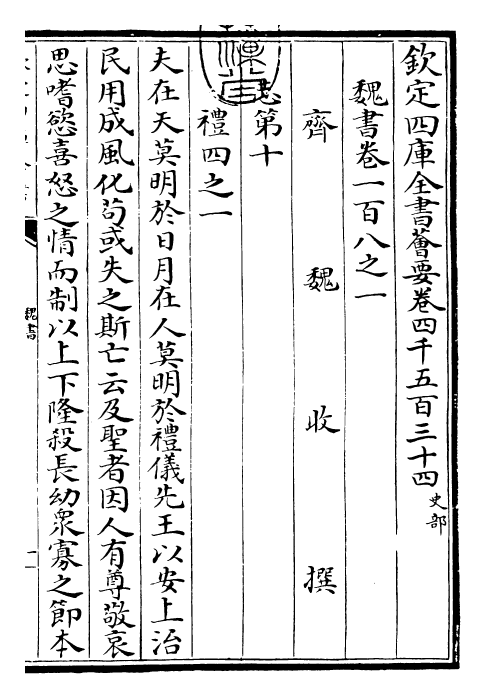 欽定四庫全書薈要卷四千五百三十四 史部
魏書卷一百八之一
齊 魏 收 撰
志第十
禮四之一
夫在天莫明於日月在人莫明於禮儀先王以安上治
民用成風化苟或失之斯亡云及聖者因人有尊敬哀
思嗜慾喜怒之情而制以上下隆殺長幼衆寡之節本
魏書
一